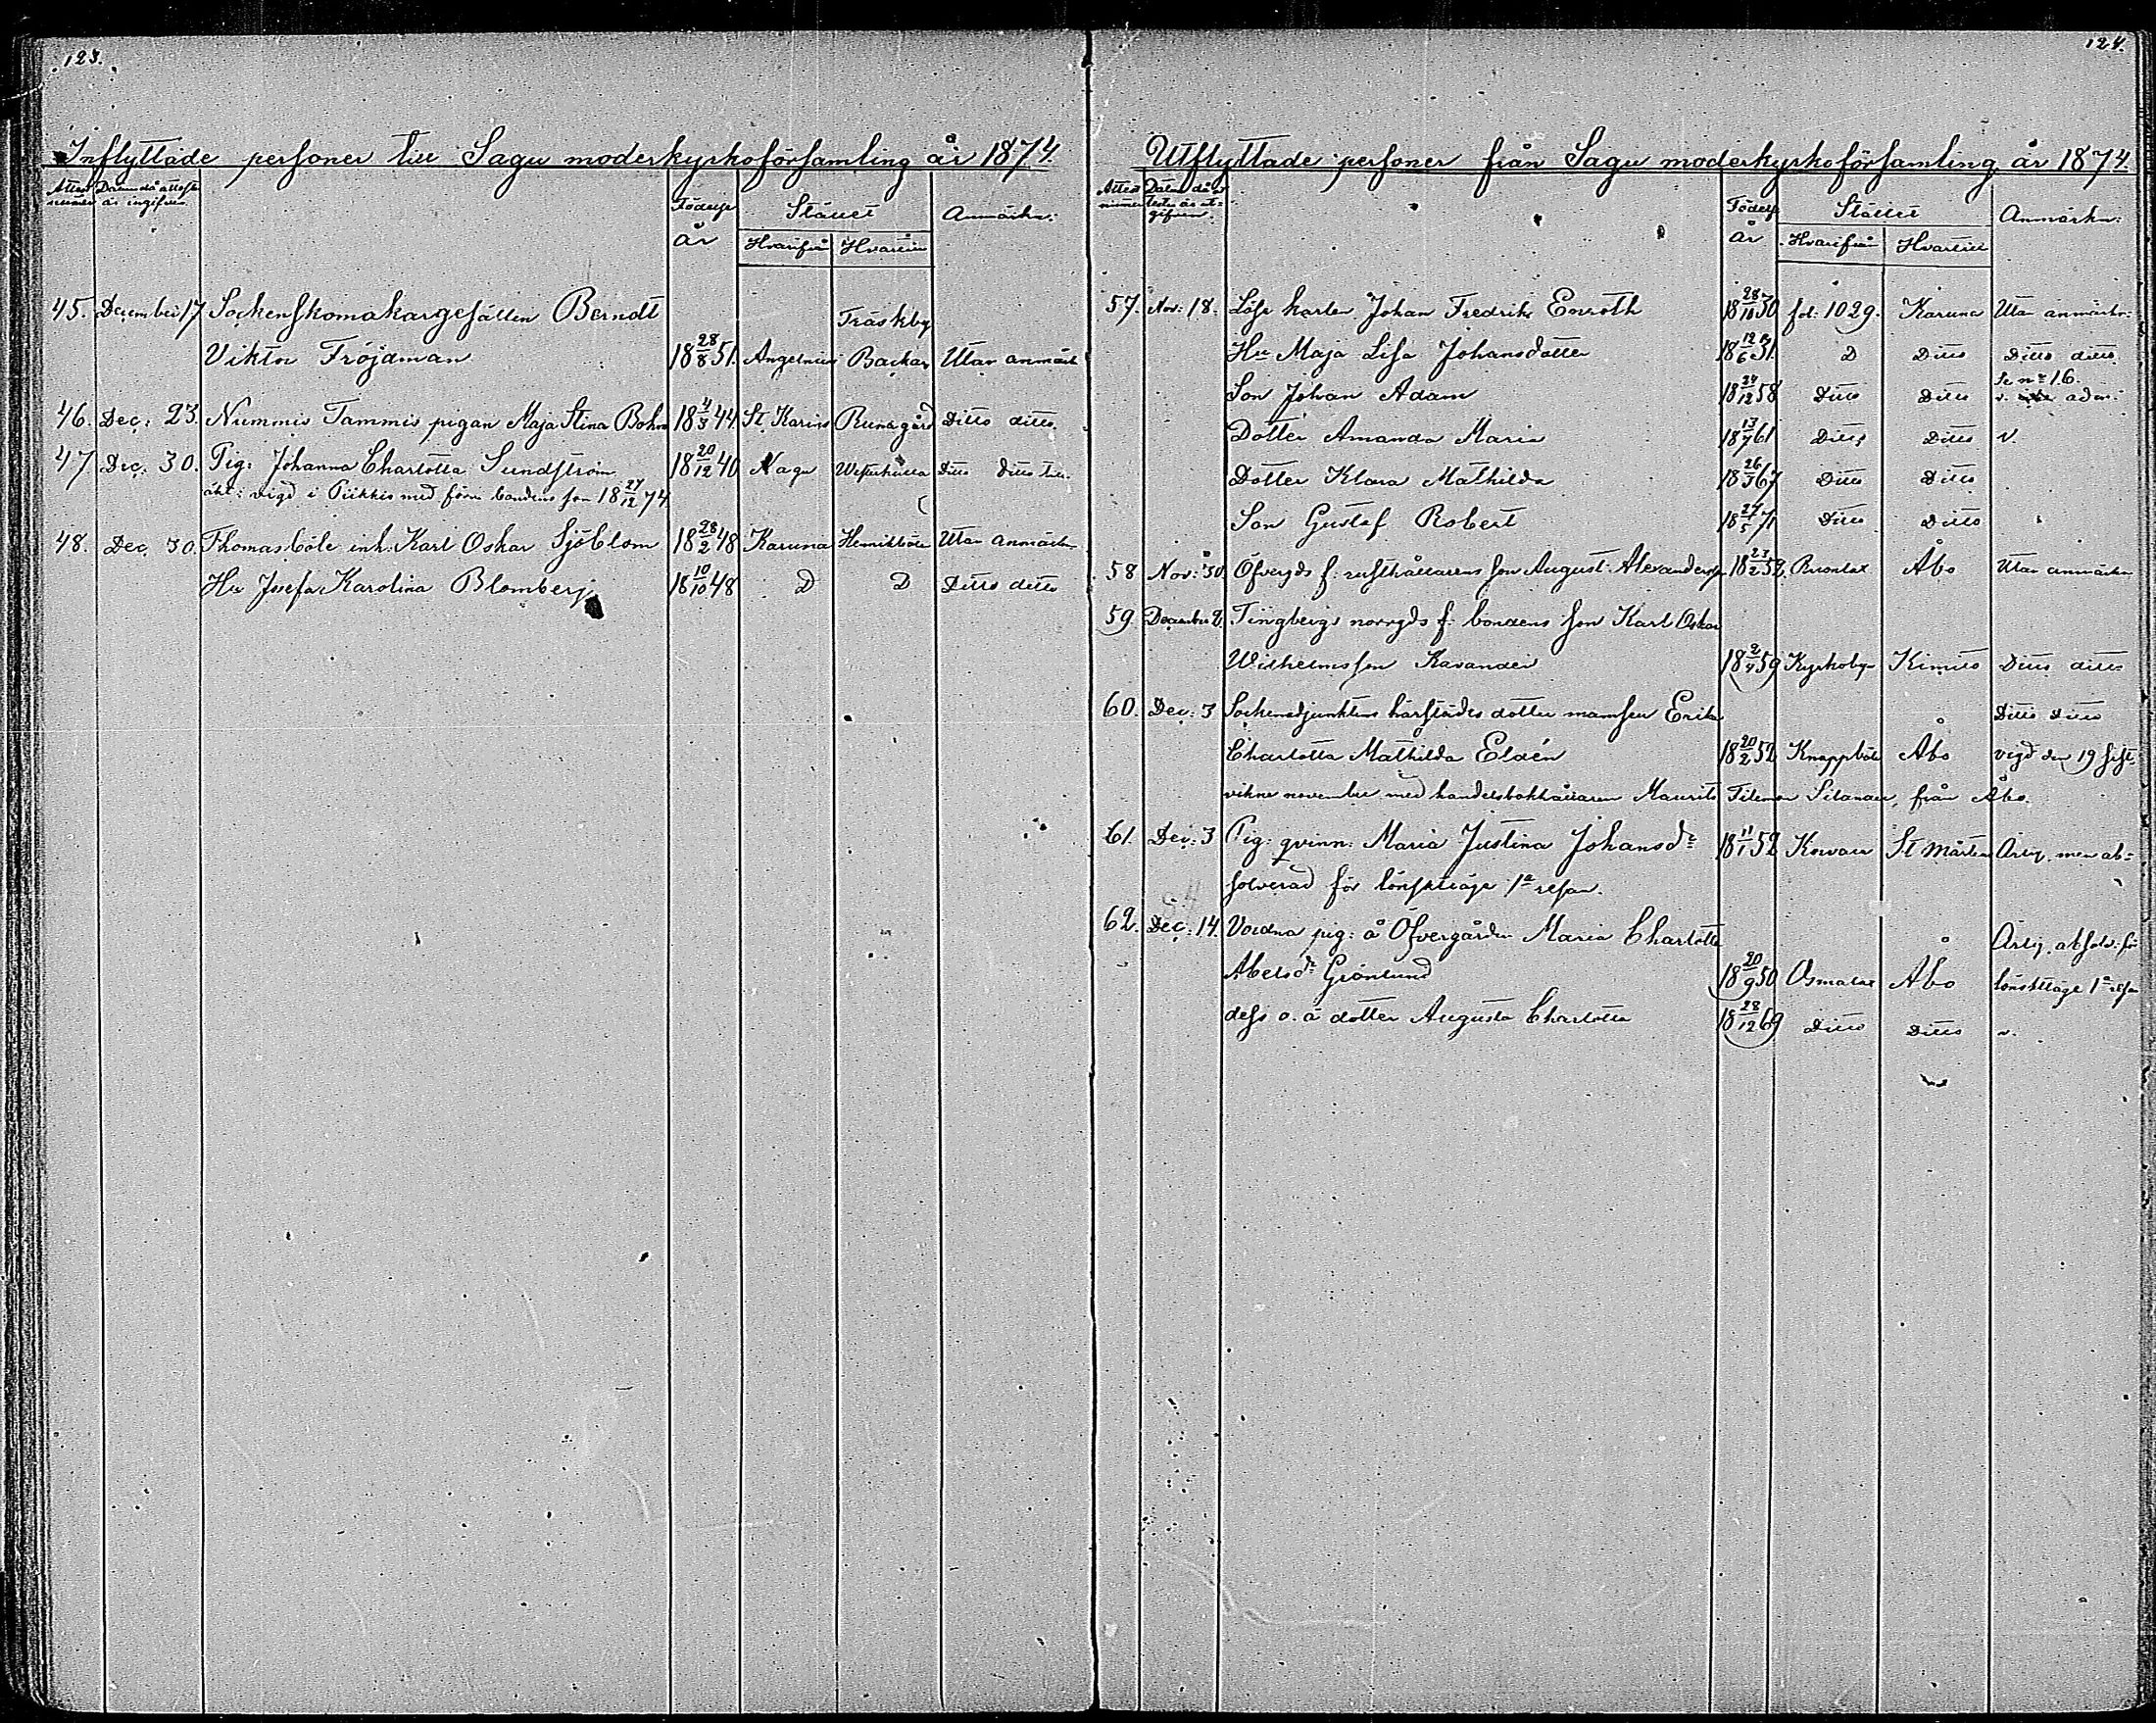 123.
Inflyttade personer till Sagu moderkyrkoförsamling år 1874.
Attest nummer Datum då attesten är ingifven
Födelse år
Stället
Anmärkn:
Hvarifrån Hvartill
45. December 17 Sockenskomakargesällen Berndt Träskby
Viktor Fröjdman 18 28/8 51. Angelniemi Backas Utan anmärk
46. Dec: 23. Nummis Tammis pigan Maja Stina Bohm 18 4/3 44. St Karins Runagård Ditto ditto
47 Dec: 30. Pig: Johanna Charlotta Sundström 18 20/12 40 Nagu Westerkulla Ditto ditto
äkt: vigd i Piikkis med förre bondens son 18 27/12 74
48. Dec. 30. Thomasböle inh. Karl Oskar Sjöblom 18 28/2 48 Karuna Henriksböle Utan anmärkn
Hu Josefa Karolina Blomberg 18 10/10 48 D D Ditto ditto
124.
Utflyttade personer från Sagu moderkyrkoförsamling år 1874.
Attest nummer Datum då attesten är utgifven.
Födelse år
Stället
Anmärkn:
Hvarifrån Hvartill
57. Nov: 18. Löse karlen Johan Fredrik Enroth 18 28/10 30 fol: 1029. Karuna Utan anmärkn:
Hu Maja Lisa Johansdotter 18 12/6 31 D Ditto Ditto ditto
Son Johan Adam 18 24/12 58 Ditto Ditto Se no 16.
Dotter Amanda Maria 18 13/7 61 Ditto Ditto v.
Dotter Klara Mathilda 18 26/3 67 Ditto Ditto
Son Gustaf Robert 18 27/5 71 Ditto Ditto
58 Nov: 30. Öfvergds f: rusthållarens son August Alexandersson 18 23/2 53. Åbo Utan anmärkn
59. December 2. Tingbergs norrgds f: bondens son Karl Oskar
Wilhelmsson Kavander 18 2/4 59 Kyrkoby Kimito Ditto ditto
60. Dec: 3 Sockenadjunktens härstädes dotter mamsell Erika Ditto ditto
Charlotta Mathilda Eldén 18 20/2 52 Knappböle Åbo vigd den 19 sist-
vikne november med handelsbokhållaren Maurits Filemon Silander, från Åbo.
61. Dec: 3 Pig: qvinn: Maria Justina Johansdr 18 11/1 52 Korvais St Mårtens Ärlig. men ab-
solverad för lönskaläge 1a resan.
62. Dec: 14. Vordna pig: å Öfvergården Maria Charlotta Ärlig. absolv: för
Abelsdr Grönlund 18 20/9 50 Osmalax Åbo lönskläge 1a resan
dess o. ä dotter Augusta Charlotta 18 28/12 69 Ditto Ditto v.